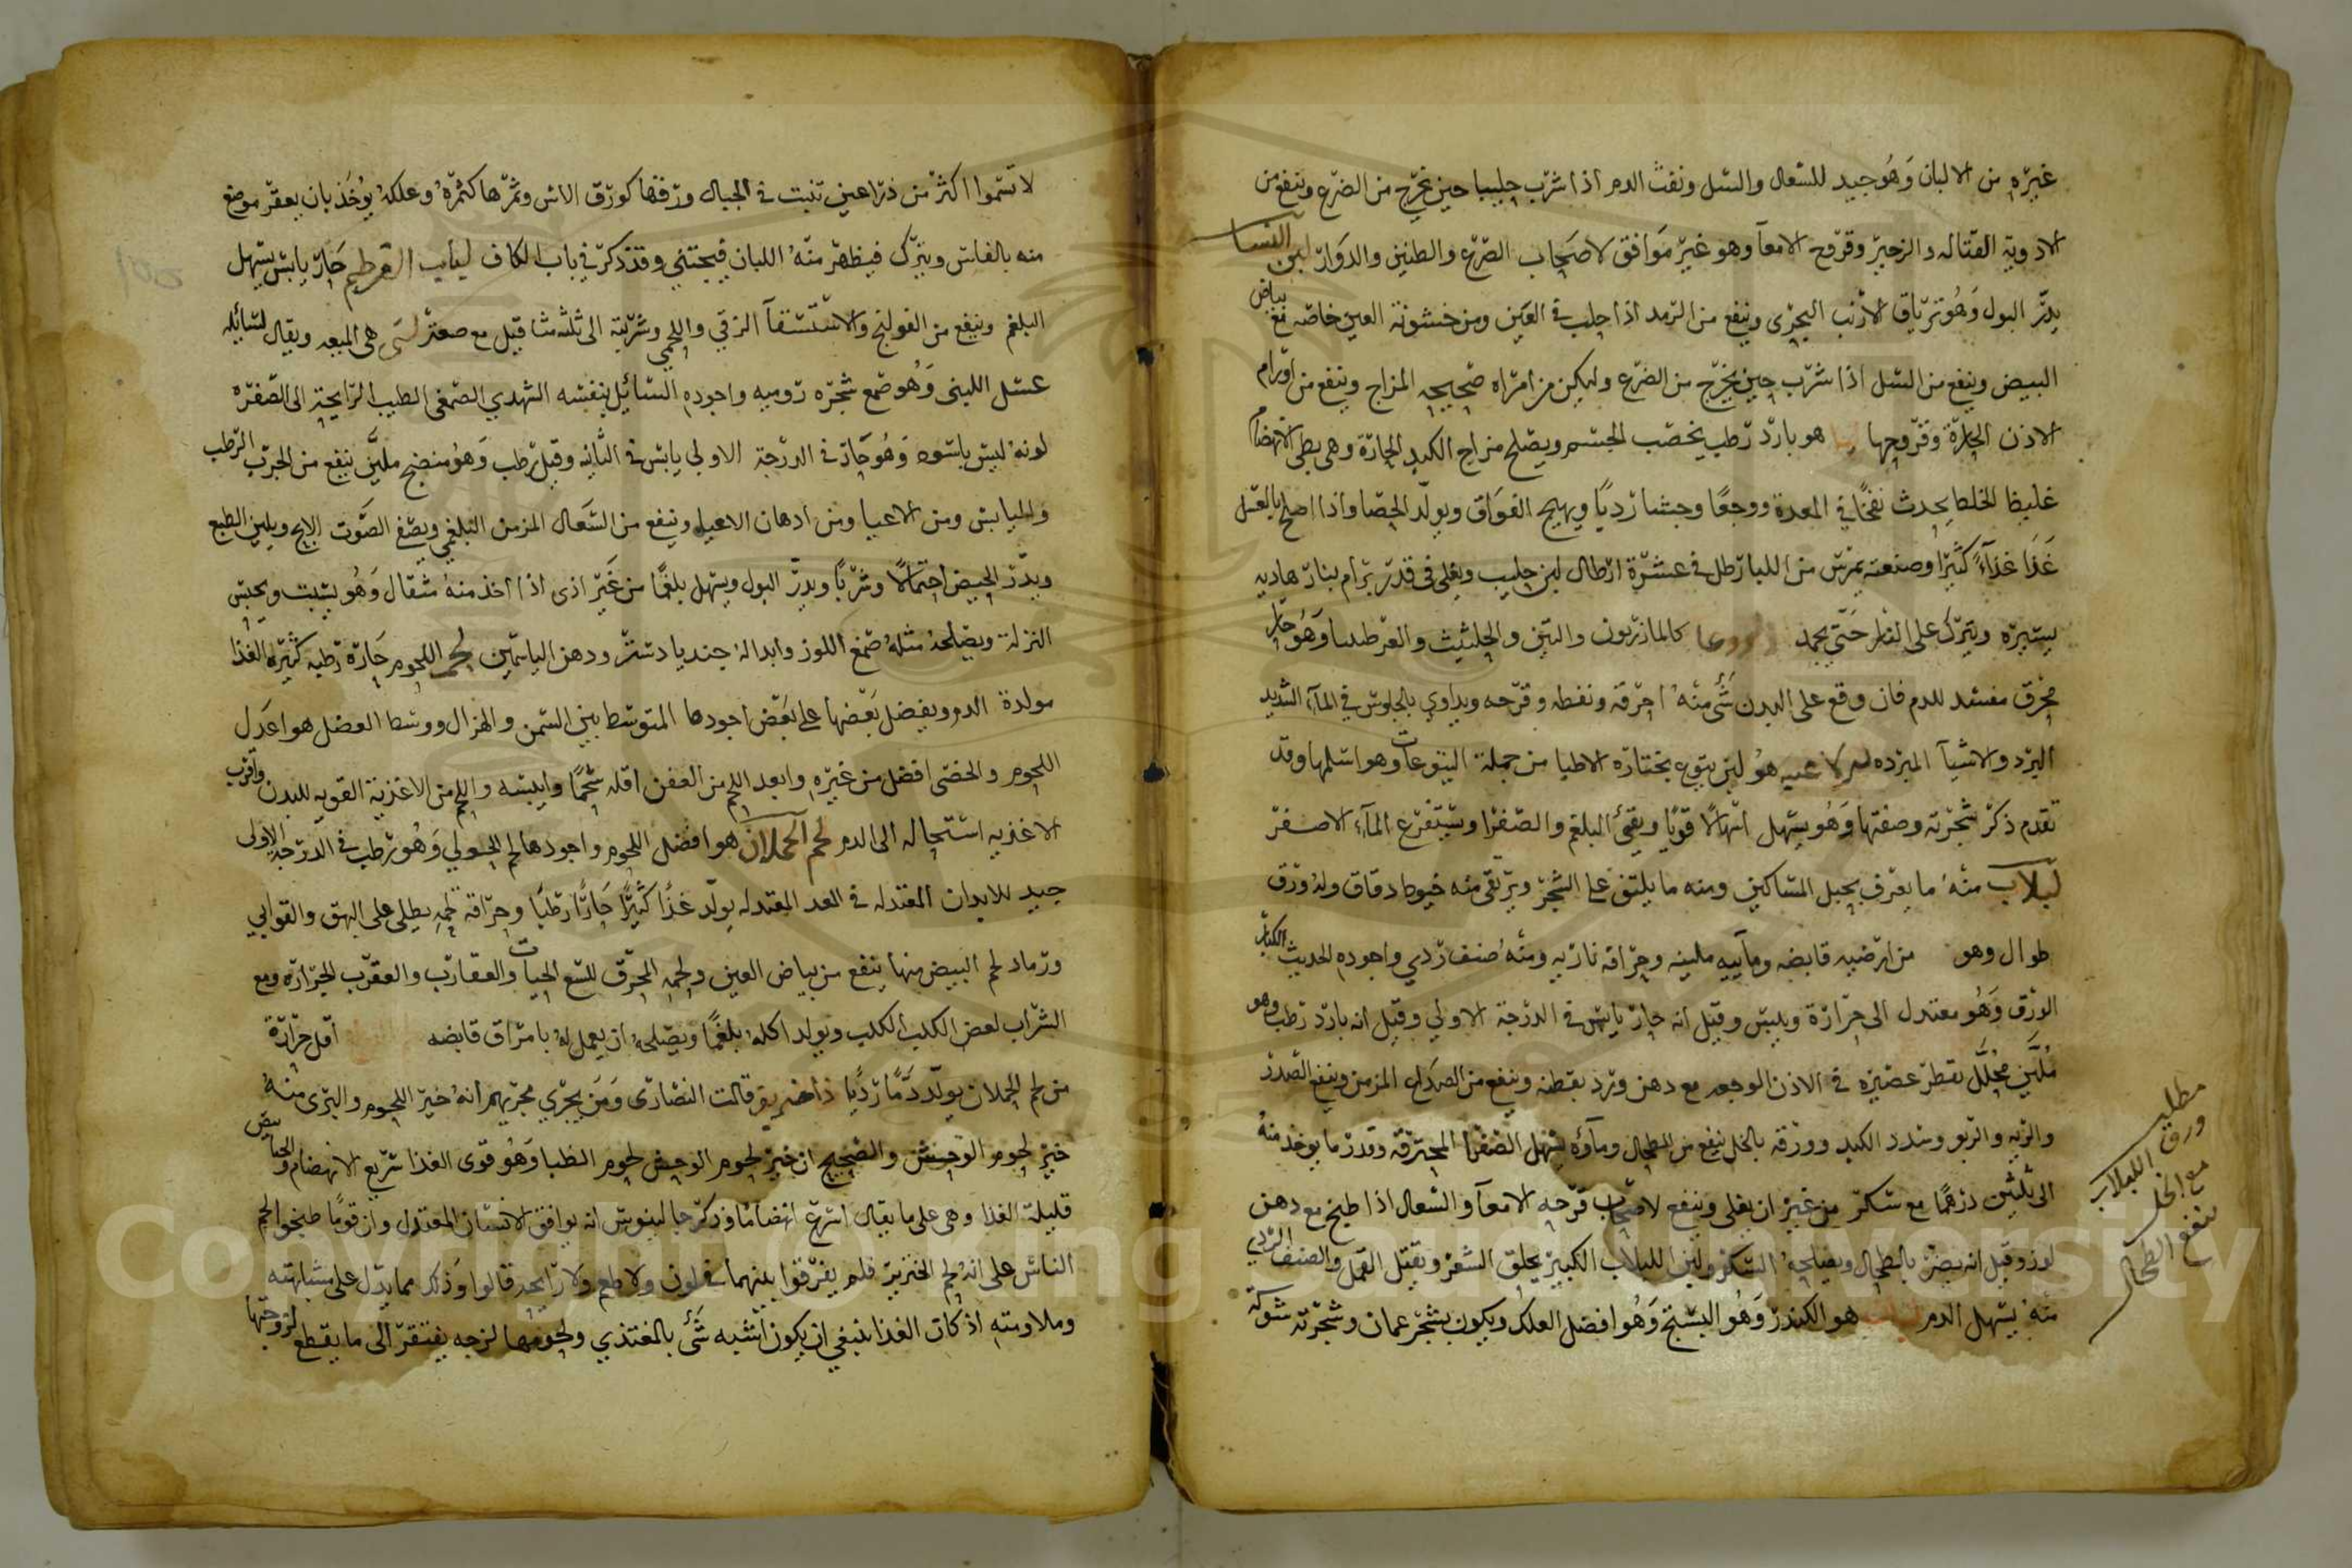 غيره من الالبان وهو جيد للسعال والسل ونفث الدم اذا شرب حليبا حين يخرج من الضرع وينفع من
الادوية القتاله والزحير وقروح الامعآ وهو غير موافق لاصحاب الصرع والطنين والدوار لبن النسا
يدر البول وهو ترياق الارنب البحرى وينفع من الرمد اذا حلب في العين ومن خشونة العين خاصه مع بياض
البيض وينفع من السل اذا شرب حين يخرج من الضرع وليكن من امراه صحيحه المزاج وينفع من اورام
الاذن الحارة وقروحها لبا هو بارد رطب يخصب الجسم ويصلح مزاج الكبد الحارة وهى بطى الانهضام
غليظ الخلط يحدث نفخا في المعدة ووجعا وجشا رديا ويهيج الفواق ويولد الحصا واذا اصلح بالعسل
غذا غذاءً كثيرا وصنعته يمرس من اللبا رطل في عشرة ارطال لبن حليب ويغلى فى قدر برام بنار هاديه
يسيره ويترك على النار حتى يجمد كالمازريون والتين والحلتيث والعرطنيثا وهو حار
محرق مفسد للدم فان وقع على البدن شئ منه احرقه ونفطه وقرحه ويداوي بالجلوس في المآء الشديد
البرد والاشيآ المبرده لبن لاعيه هو لبن يتوع يختاره الاطبا من جملة اليتوعات وهو اسلمها وقد
تقدم ذكر شجرته وصفتها وهو يسهل اسهالا قويا ويقئ البلغم والصفرا ويستفرغ المآء الاصفر
لبلاب منه ما يعرف بحبل المساكين ومنه ما يلتف على الشجر ويرتقى منه خيوط دقاق وله ورق
طوال وهو من ارضيه قابضه ومآييه ملينه وحرافه ناريه ومنه صنف ردي واجوده الحديث الكبار
الورق وهو معتدل الى حرارة ويبس وقيل انه حار يابس في الدرجة الاولي وقيل انه بارد رطب وهو
ملين محلل يقطر عصيره في الاذن الوجعه مع دهن ورد بقطنه وينفع من الصداع المزمن وينفع الصدر
والريه والربو وسدد الكبد وورقه بالخل ينفع من الطحال ومآؤه يسهل الصفرا المحترقه وقدر ما يوخذ منه
الى ثلثين درهما مع سكر من غير ان يغلى وينفع لاصحاب قرحه الامعآ والسعال اذا طبخ مع دهن
لوز وقيل انه يضر بالطحال ويصلحه السكر ولبن اللبلاب الكبير يحلق الشعر ويقتل القمل والصنف الردي
منه يسهل الدم لبان هو الكندر وهو البستج وهو افضل العلك ويكون بشجر عمان وشجرته شوكة
مطلب
ورق اللبلاب
مع الخل
ينفع الطحال
لا تسموا اكثر من ذراعين تنبت في الجبال ورقها كورق الاس وثمرها كثمره وعلكه يوخذ بان يعقر موضع
منه بالفاس ويترك فيظهر منه اللبان فيجتنى وقد ذكر في باب الكاف لباب القرطم حار يابس يسهل
البلغم وينفع من القولنج والاستسقآ الزقي واللحمي وشربته الى ثلثه مثاقيل مع صعتر لبنى هى الميعه ويقال لسائله
عسل اللبنى وهو صمغ شجره روميه واجوده السائل بنفسه الشهدي الصمغى الطيب الرايحة الى الصفره
لونه ليس باسود وهو حار في الدرجة الاولي يابس في الثانيه وقيل رطب وهو منضج ملين ينفع من الجرب الرطب
واليابس ومن الاعيا ومن ادهان الاعيا وينفع من السعال المزمن البلغمي ويصفى الصوت الابح ويلين الطبع
ويدر الحيض احتمالا وشربا ويدر البول ويسهل بلغما من غير اذى اذا اخذ منه مثقال وهو يسبت ويحبس
النزلة ويصلحه مثله صمغ اللوز وابداله جنديادستر ودهن الياسمين لحم اللحوم حارة رطبه كثيرة الغذا
مولدة الدم ويفضل بعضها على بعض اجودها المتوسط بين السمن والهزال ووسط العضل هو اعدل
اللحوم والخصى افضل من غيره وابعد اللحم من العفن اقله شحما وايبسه واللحم من الاغذية القويه للبدن واقرب
الاغذيه استحاله الى الدم لحم الحملان هو افضل اللحوم واجودها لحم الحولي وهو رطب في الدرجه الاولى
جيد للابدان المعتدله في المعد المعتدله يولد غذا كثيرا حارا رطبا وحراقة لحمه يطلى على البهق والقوابي
ورماد لحم البيض منها ينفع من بياض العين ولحمه المحرق للسع الحيات والعقارب والعقرب الجراره ومع
الشراب لعض الكلب الكلب ويولد اكله بلغما ويصلحه ان يعمل له بامراق قابضه اقل حرارة
من لحم الحملان يولد دما رديا قالت النصارى ومن يجري مجريهم انه خير اللحوم والبرى منه
خير لحوم الوحش والصحيح ان خير لحوم الوحش لحوم الظبا وهو قوى الغذا سريع الانهضام والحنانيض
قليلة الغذا وهى على ما يقال اسرع انهضاما وذكر جالينوس انه يوافق الانسان المعتدل وان قوما طبخوا لحم
الناس على انه لحم الخنزير فلم يفرقوا بينهما في لون ولا طعم ولا رايحه قالوا وذلك مما يدل على مشابهته
وملاومته اذ كان الغذا ينبغي ان يكون اشبه شئ بالمغتذي ولحومها لزجه يفتقر الى ما يقطع لزوجتها
Copyright © King Saud University